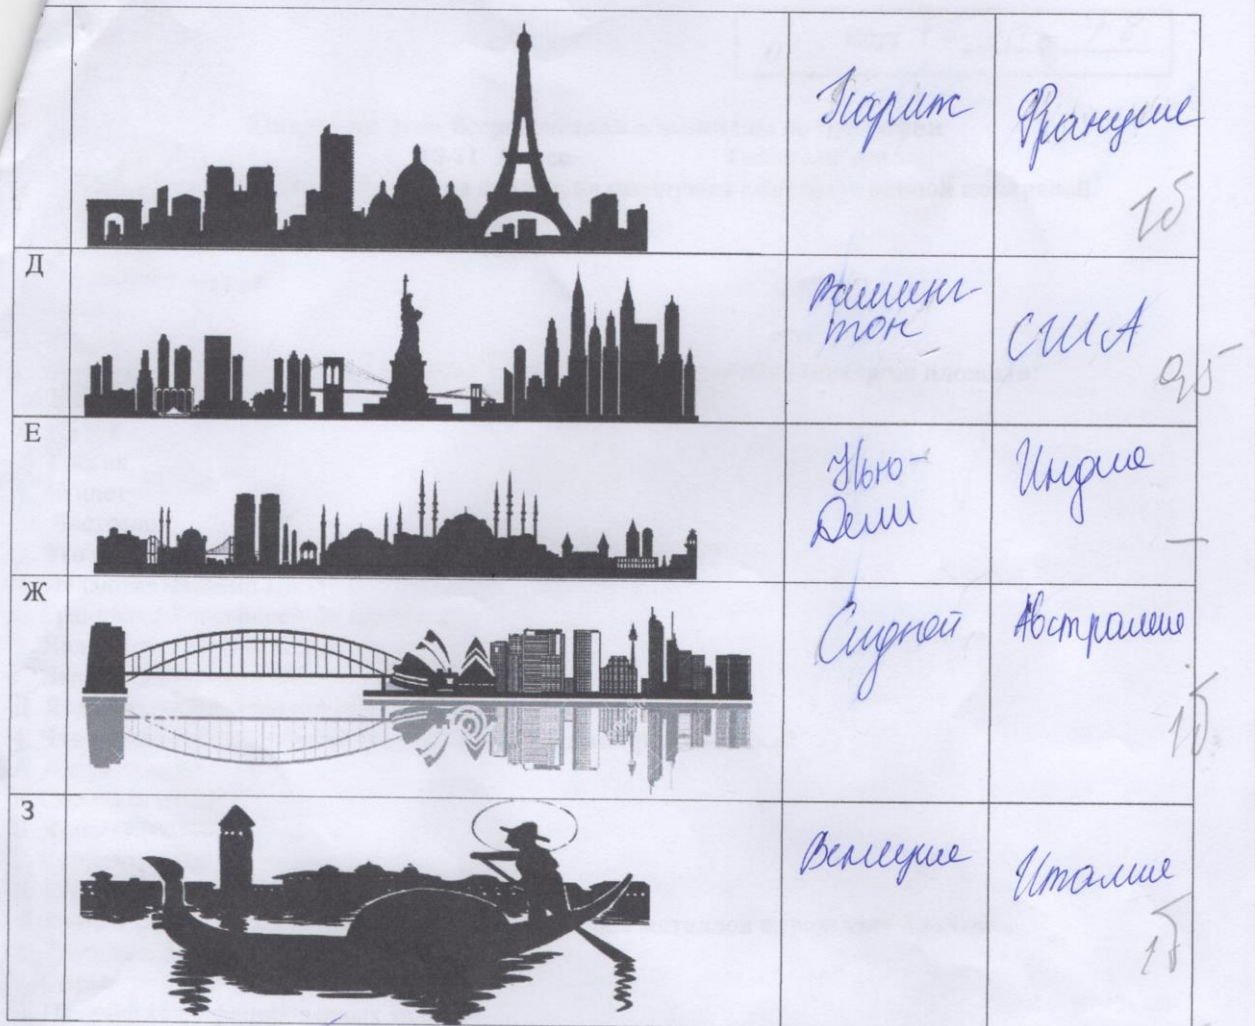 Париж Франция
1б
Д
Вашинг
тон
США
0,5
Е
Нью-
Дели
Индия
—
Ж
Сидней Австралия
1б.
З
Венеция Италия
1б